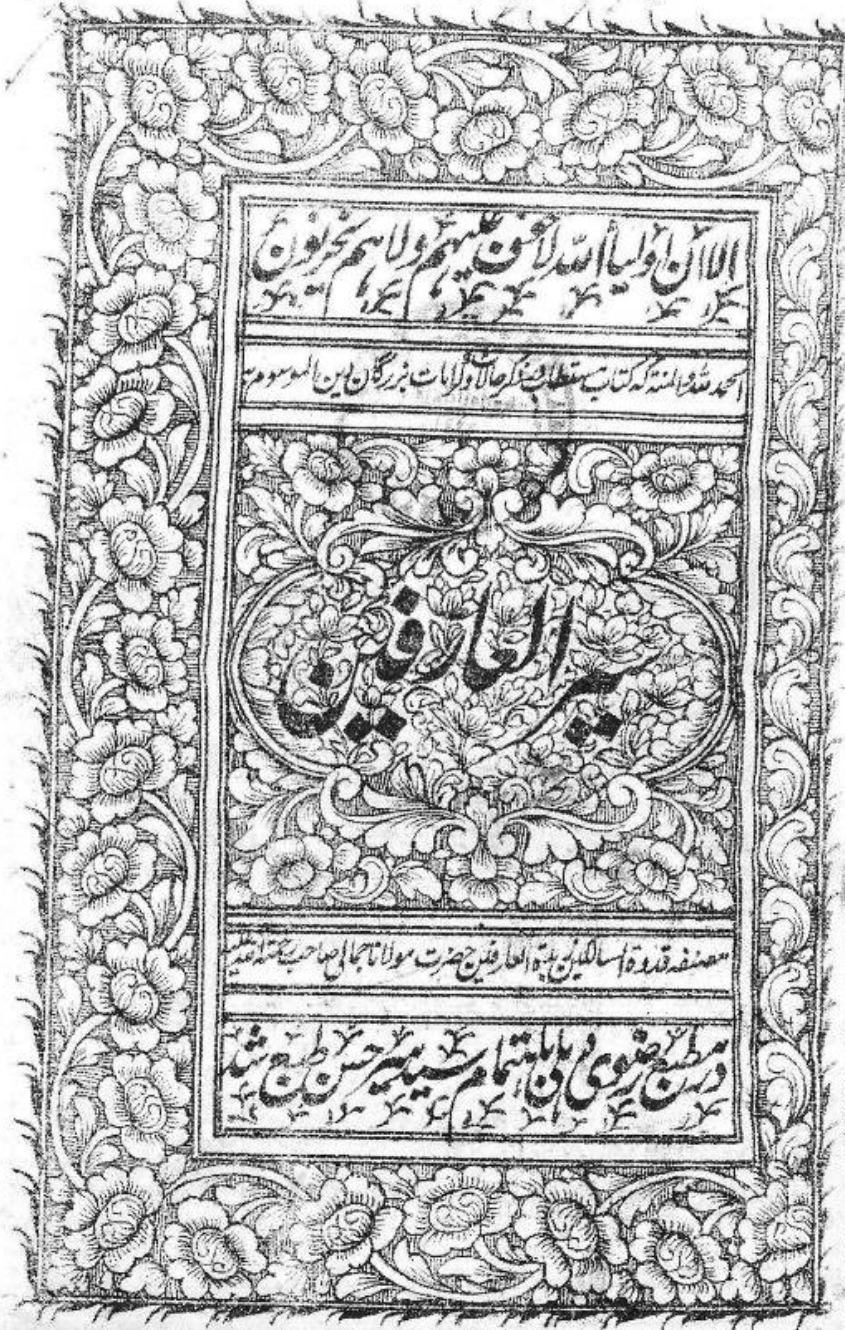 الا ان اولیاء الله لا خوف علیهم ولا هم یحزنون
الحمد لله والمنة که کتاب مستطاب در ذکر حالات و کرامات بزرگان دین الموسوم به
سیر العارفین
مصنفه قدوة السالکین زبدة العارفین حضرت مولانا جمالی صاحب رحمته الله علیه
در مطبع رضوی دهلی باهتمام سید میر حسن طبع شد